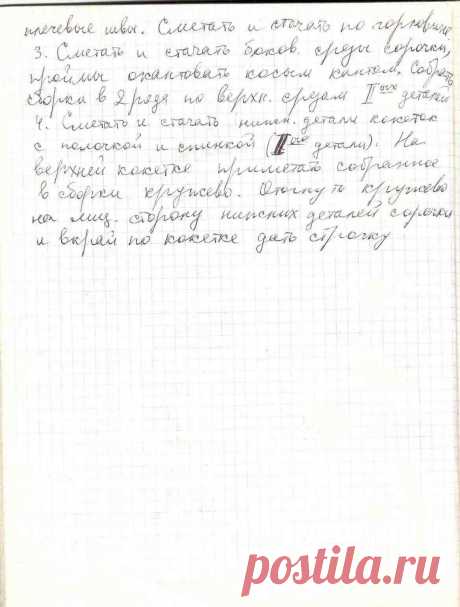 плечевые швы. Сметать и стачать по горловине
3. Сметать и стачать боков. срезы сорочки,
проймы окантовать косым кантом. Собрать
сборки в 2 ряда по верхн. срезам II ых деталей
4. Сметать и стачать нижн. детали кокеток
с полочкой и спинкой (II ые детали). На
верхней кокетке приметать собранное
в сборки кружево. Отогнуть кружево
на лиц. сторону нижних деталей сорочки
и вкрай по кокетке дать строчку
postila.ru